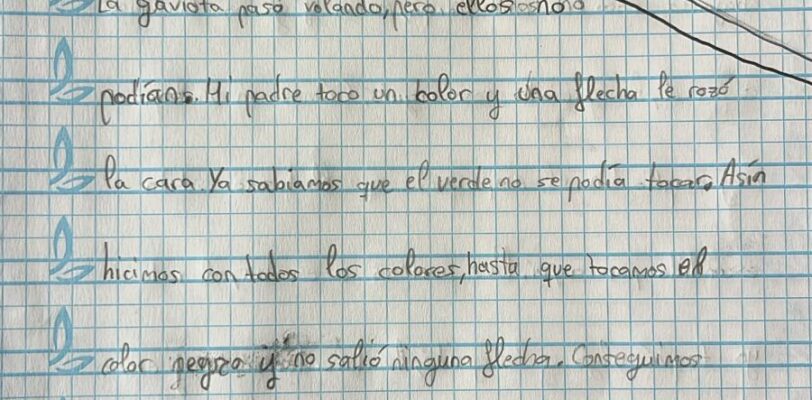 La gaviota pasó volando, pero ellos no
podían. Mi padre toco un color y una flecha le rozó
la cara. Ya sabiamos que el verde no se podía tocar. Asín
hicimos con todos los colores, hasta que tocamos el
color negro y no salió ninguna flecha. Conseguimos